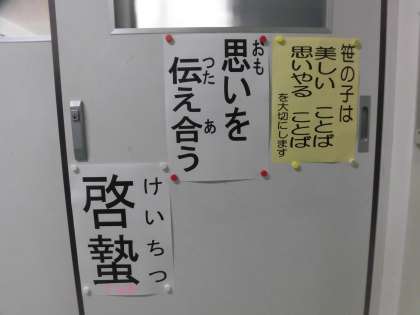 笹の子は
美しい ことば
思いやる ことば
を大切にします
おも
思いを
つた あ
伝え合う
けいちつ
啓蟄